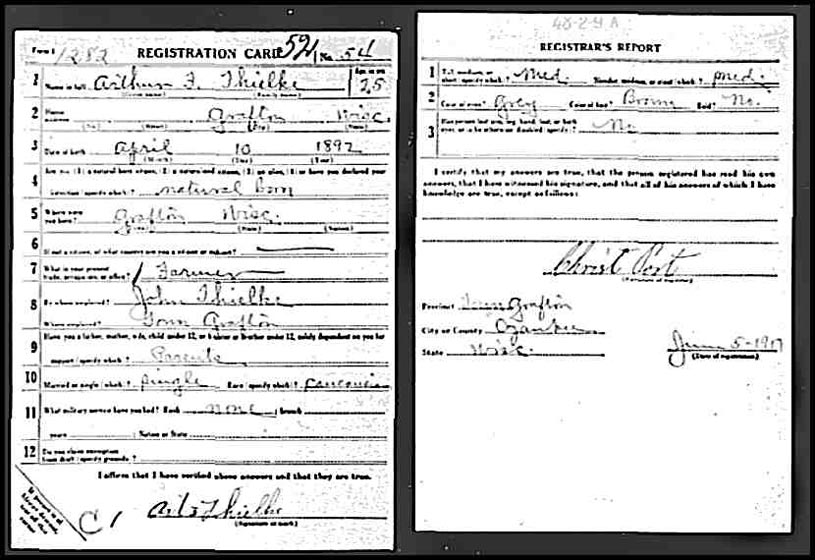 Form 1 1282 REGISTRATION CARD 521 No. 54
1 Name in full Arthur F. Thielke Age, in yrs. 25
(Given name) (Family name)
2 Home address Grafton Wisc.
(No.) (Street) (City) (State)
3 Date of birth April 10 1892
(Month) (Day) (Year)
4 Are you (1) a natural-born citizen, (2) a naturalized citizen, (3) an alien, (4) or have you declared your
intention (specify which)? natural born
5 Where were you born? Grafton Wisc.
(Town) (State) (Nation)
6 If not a citizen, of what country are you a citizen or subject?
7 What is your present trade, occupation, or office? Farmer
8 By whom employed? John Thielke
Where employed? Town Grafton
9 Have you a father, mother, wife, child under 12, or a sister or brother under 12, solely dependent on you for
support (specify which)? Parents
10 Married or single (which)? Single Race (specify which)? Caucasia
11 What military service have you had? Rank none ; branch
years ; Nation or State
12 Do you claim exemption from draft (specify grounds)?
I affirm that I have verified above answers and that they are true.
Art Thielke
(Signature or mark)
C 1
48-2-9 A
REGISTRAR'S REPORT
1 Tall, medium, or short (specify which)? Med. Slender, medium, or stout (which)? Med.
2 Color of eyes? Grey Color of hair? Brown Bald? No.
3 Has person lost arm, leg, hand, foot, or both eyes, or is he otherwise disabled (specify)? No
I certify that my answers are true, that the person registered has read his own
answers, that I have witnessed his signature, and that all of his answers of which I have
knowledge are true, except as follows:
Christ Port
(Signature of registrar)
Precinct Town Grafton
City or County Ozaukee
State Wisc. June 5-1917
(Date of registration)